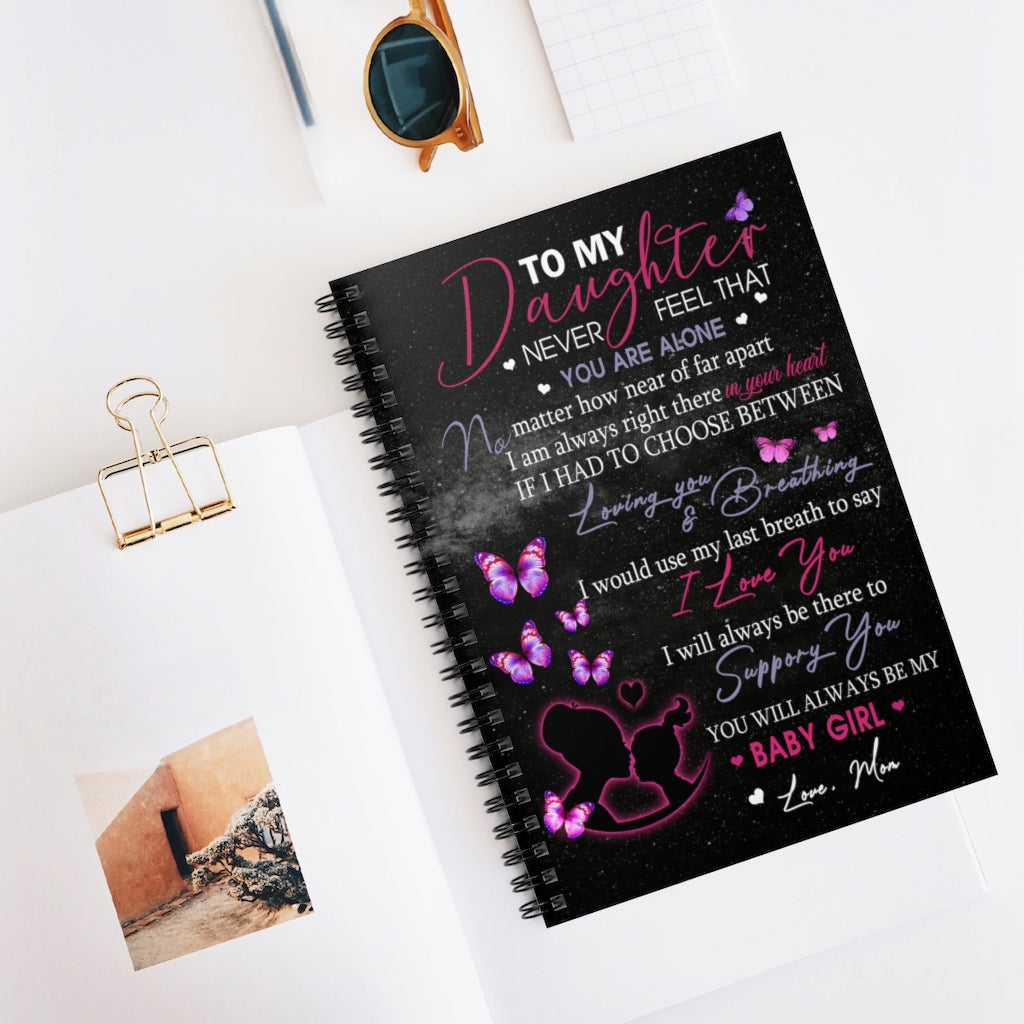 TO MY
Daughter
NEVER FEEL THAT
YOU ARE ALONE
No matter how near of far apart
I am always right there in your heart
IF I HAD TO CHOOSE BETWEEN
Loving you
& Breathing
I would use my last breath to say
I Love You
I will always be there to
Suppory You
YOU WILL ALWAYS BE MY
BABY GIRL
Love, Mom